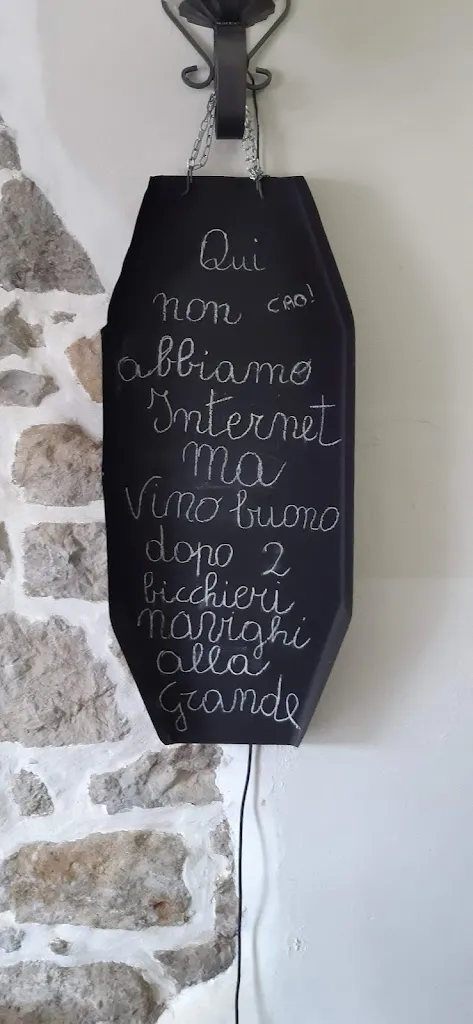 Qui
non CIAO!
abbiamo
Internet
ma
Vino buono
dopo 2
bicchieri
navighi
alla
Grande